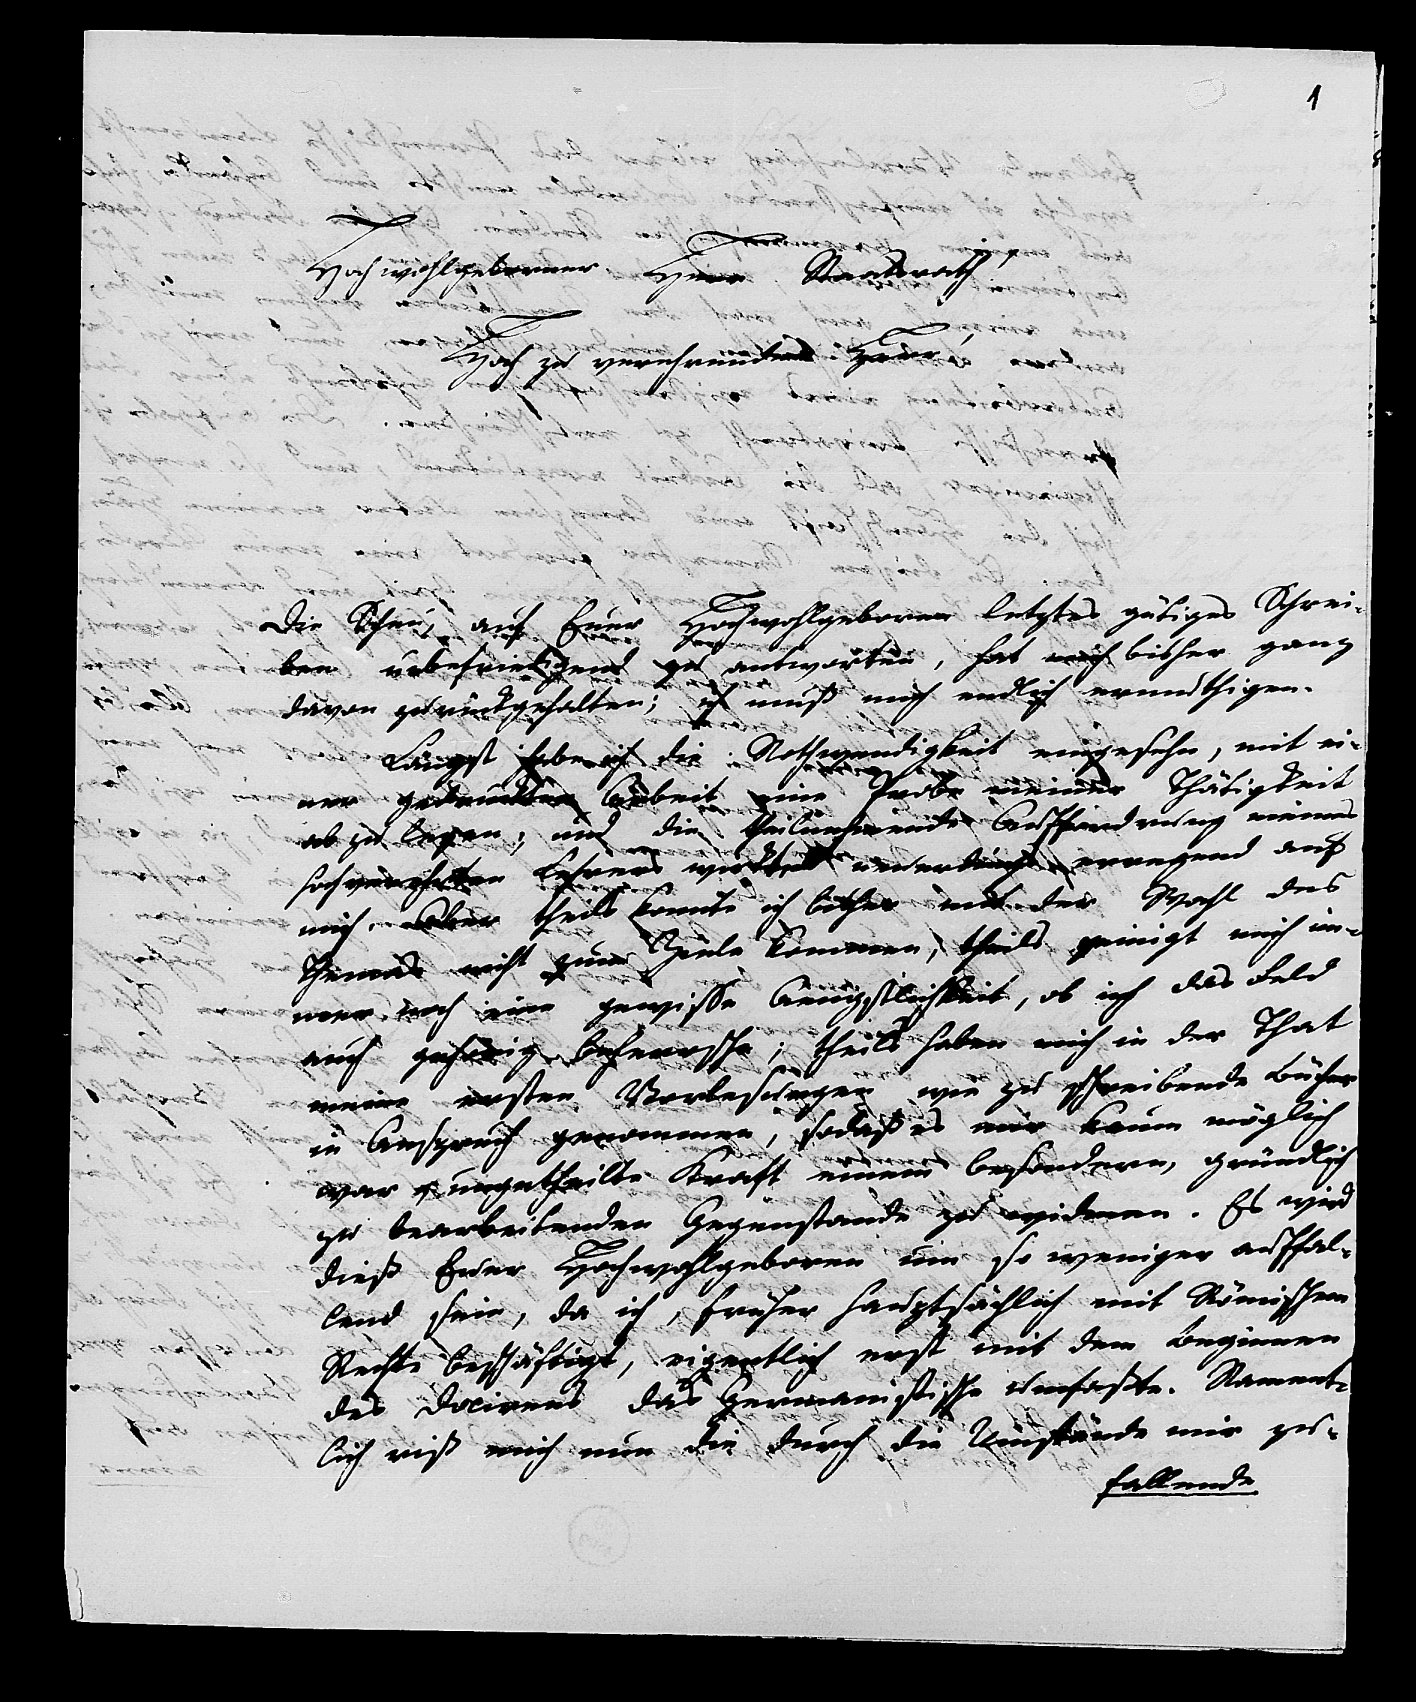 1
Hochwohlgeborner Herr Staatsrath!
Hoch zu verehrender Herr!
Die Scheu, auf Euer Hochwohlgeboren letztes gütiges Schrei-
ben unbefriedigend zu antworten, hat mich bisher ganz
davon zurückgehalten; ich muß mich endlich ermuthigen.
Längst habe ich die Nothwendigkeit eingesehn, mit ei-
ner gedruckten Arbeit eine Probe meiner Thätigkeit
ab zu legen; und die theilnehmende Aufforderung meines
hochverehrten Lehrers wirkte neuerdings erregend auf
mich. Aber theils konnte ich bisher mit der Wahl des
Themas nicht zum Ziele kommen, theils peinigt mich im-
mer noch eine gewisse Aengstlichkeit, ob ich das Feld
auch gehörig beherrsche; theils haben mich in der That
meine ersten Vorlesungen wie zu schreibende Bücher
in Anspruch genommen, sodaß es mir kaum möglich
war ungetheilte Kraft einem besondern, gründlich
zu bearbeitenden Gegenstande zu widmen. Es wird
dieß Euer Hochwohlgeboren um so weniger auffal-
lend sein, da ich, früher hauptsächlich mit Römischem
Rechte beschäftigt, eigentlich erst mit dem Beginnen
des Docirens das Germanistische umfaßte. Nament-
lich riß mich nun die durch die Umstände mir zu-
fallende